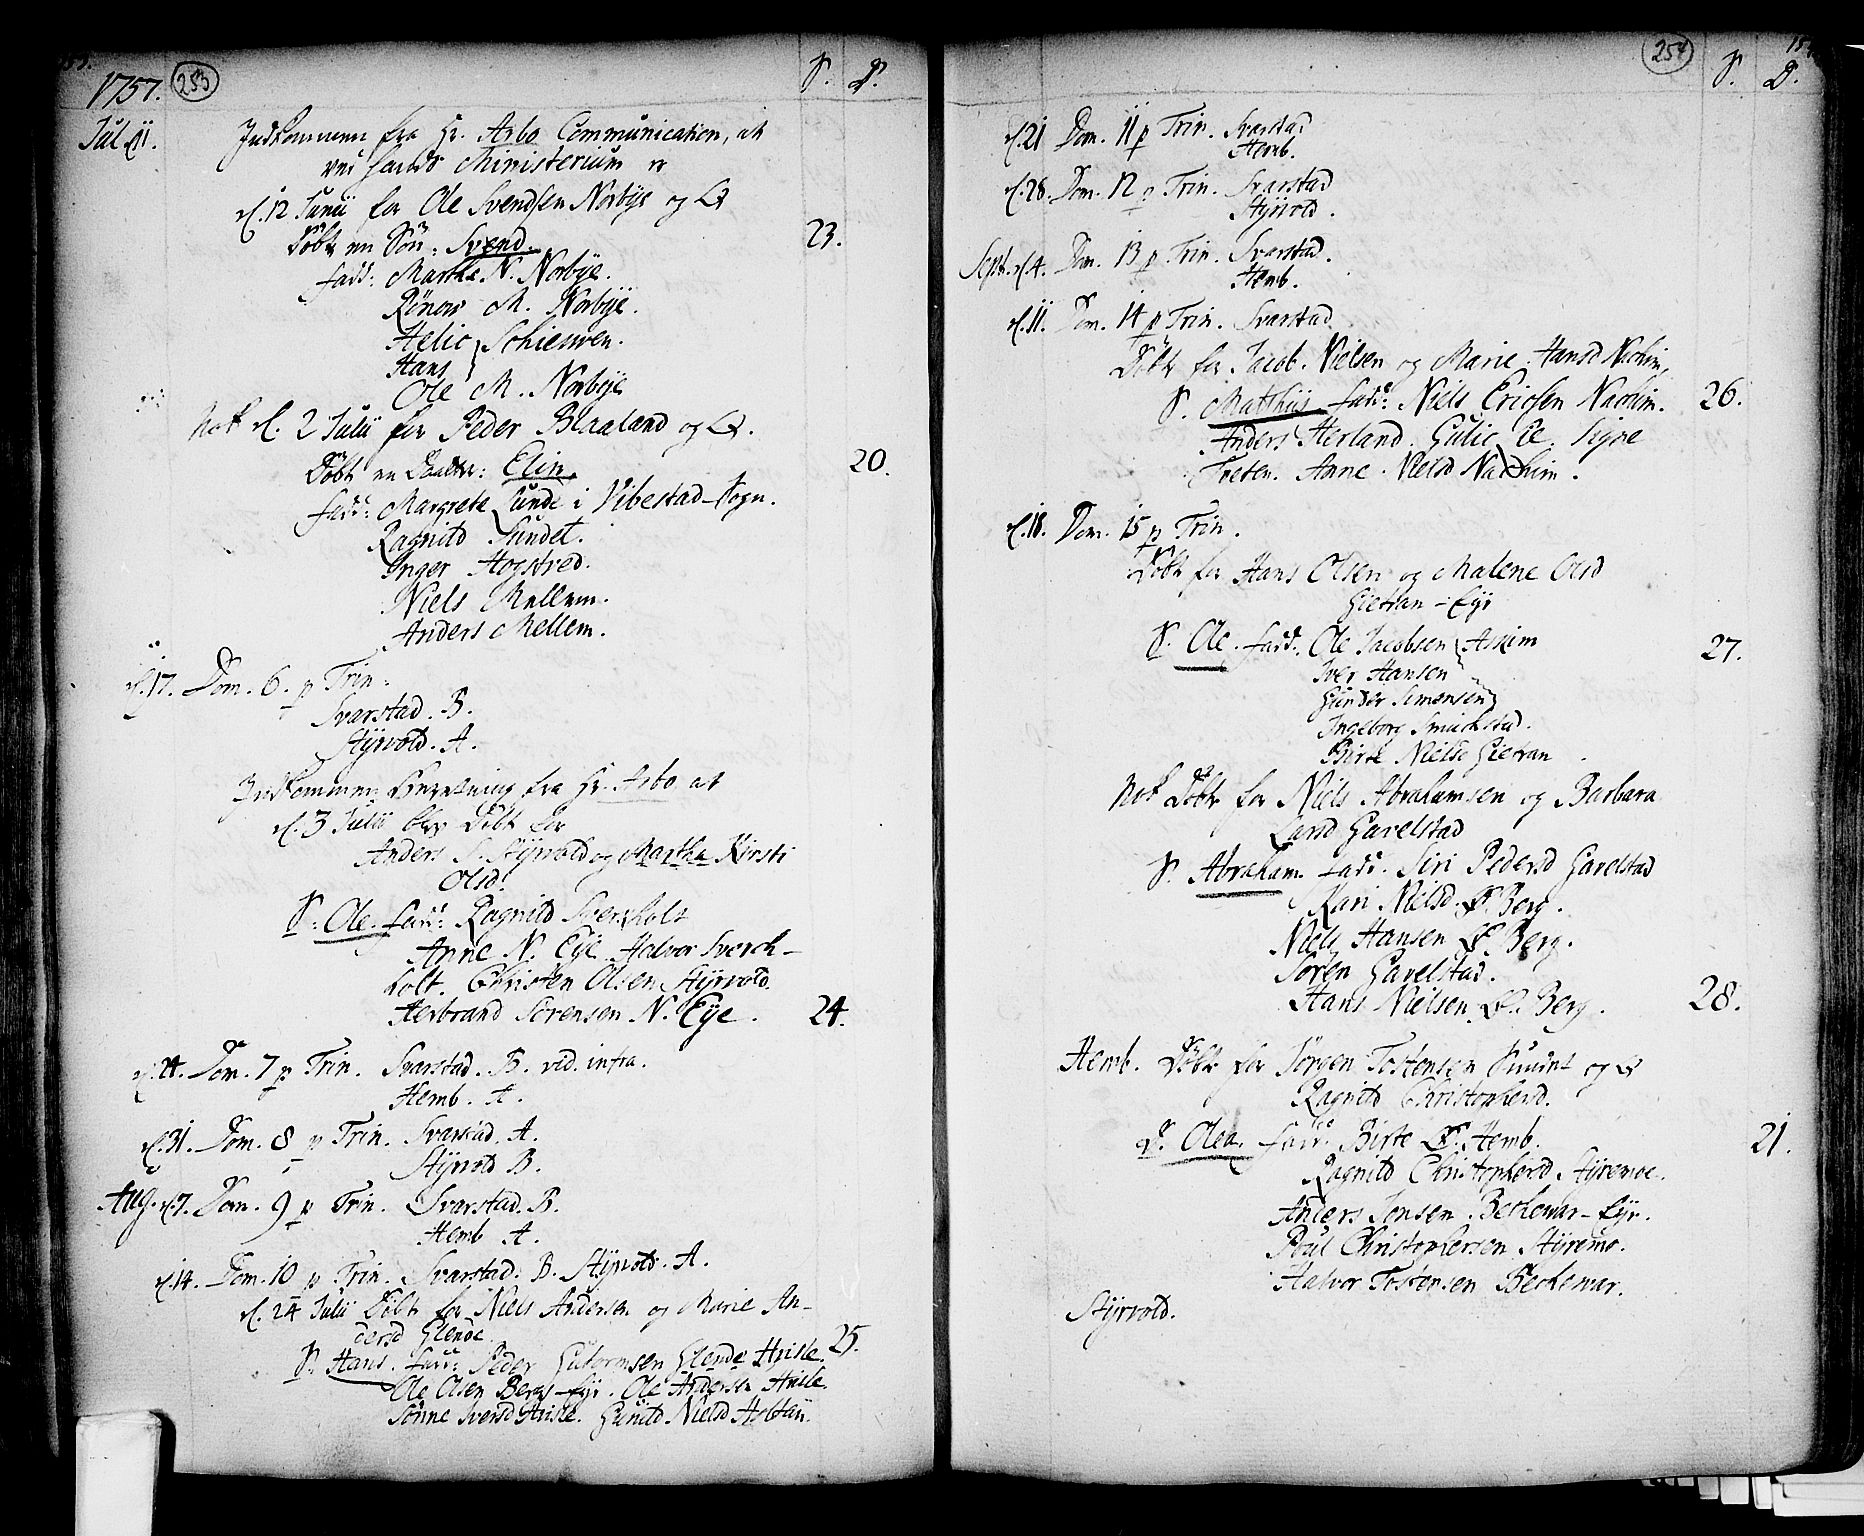 1757. 253 S. D.
Jul 11. Indkommen fra Hr. Arbo Communication, at
ved hands Ministerium er
d. 12 Junii for Ole Svendsen Norbye og
Döbt en Sön: Svend. 23.
fadd: Marthe N. Norbÿe.
Rönow M. Norbÿe.
Helie Schienven.
Hans
Ole M. Norbÿe
Nok d. 2 Julii for Peder Blaaland og
Döbt en Daatter: Elin. 20.
fadd: Margrete Lunde i Vibestad-Sogn.
Ragnild Sundet.
Inger Hogstred.
Niels Mellem.
Anders Mellem.
d. 17. Dom. 6. p Trin.
Svarstad. B.
Stÿrvold. A.
Indkommen Beretning fra Hr. Arbo at
d. 3 Julii blev Döbt for
Anders S. Stÿrvold og Martha Kirsti
Olsd.
S. Ole. fadd: Ragnild Sverkholt
Anne N. Eÿe Halvor Sverk-
holt. Christen Olsen Stÿrvold.
Herbrand Sörensen N. Eÿe. 24.
d. 24. Dom. 7 p Trin. Svarstad. B. vid. infra.
Hemb. A.
d. 31. Dom. 8 p Trin. Svarstad. A.
Stÿrvold B.
Aug. d. 7. Dom. 9 p Trin. Svarstad. B.
Hemb A.
d. 14. Dom. 10 p Trin. Svarstad. B. Stÿrvold. A.
d. 24 Julii Döbt for Niels Andersen og Marie An-
dersd Glende. 25.
S. Hans. fadd: Peder Gutormsen Glende Hvisle.
Ole Olsen Berg-Eÿr. Ole Andersen Hvisle.
Sönne Iversd Hvisle. Gunild Nielsd Holtan.
254 S. D.
d. 21 Dom. 11 p Trin. Svarstad
Hemb.
d. 28. Dom. 12 p Trin. Svarstad
Stÿrvold.
Sept. d. 4. Dom. 13 p Trin. Svarstad.
Hemb.
d. 11. Dom. 14 p Trin. Svarstad
Döbt for Jacob Nielsen og Marie Hansd
S. Matthiis fadd: Niels Ericsen 26.
Anders Herland. Gulic Signe
Tveten. Anne Nielsd
d. 18. Dom. 15 p Trin.
Döbt for Hans Olsen og Malene Olsd
Gietran-Eÿr
S. Ole. fadd: Ole Jacobsen Askim 27.
Iver Hansen
Gunder Simensen
Ingeborg
Birte Nielsd Gietran
Nok Döbt for Niels Abrahamsen og Barbara
Larsd Gavelstad
S. Abraham fadd. Siri Pedersd Gavelstad
Kari Nielsd. Berg.
Niels Hansen Berg.
Sören Gavelstad.
Hans Nielsen Berg. 28.
Hemb. Döbt for Jörgen Tostensen og
Ragnild Christophersd.
D. Olea. fadd: Birte Hemb. 21.
Ragnild Christophersd Stÿremoe.
Anders Jonsen Beckevar-Eÿr.
Poul Christophersen Stÿremo.
Halvor Tostensen Beckevar.
Stÿrvold.